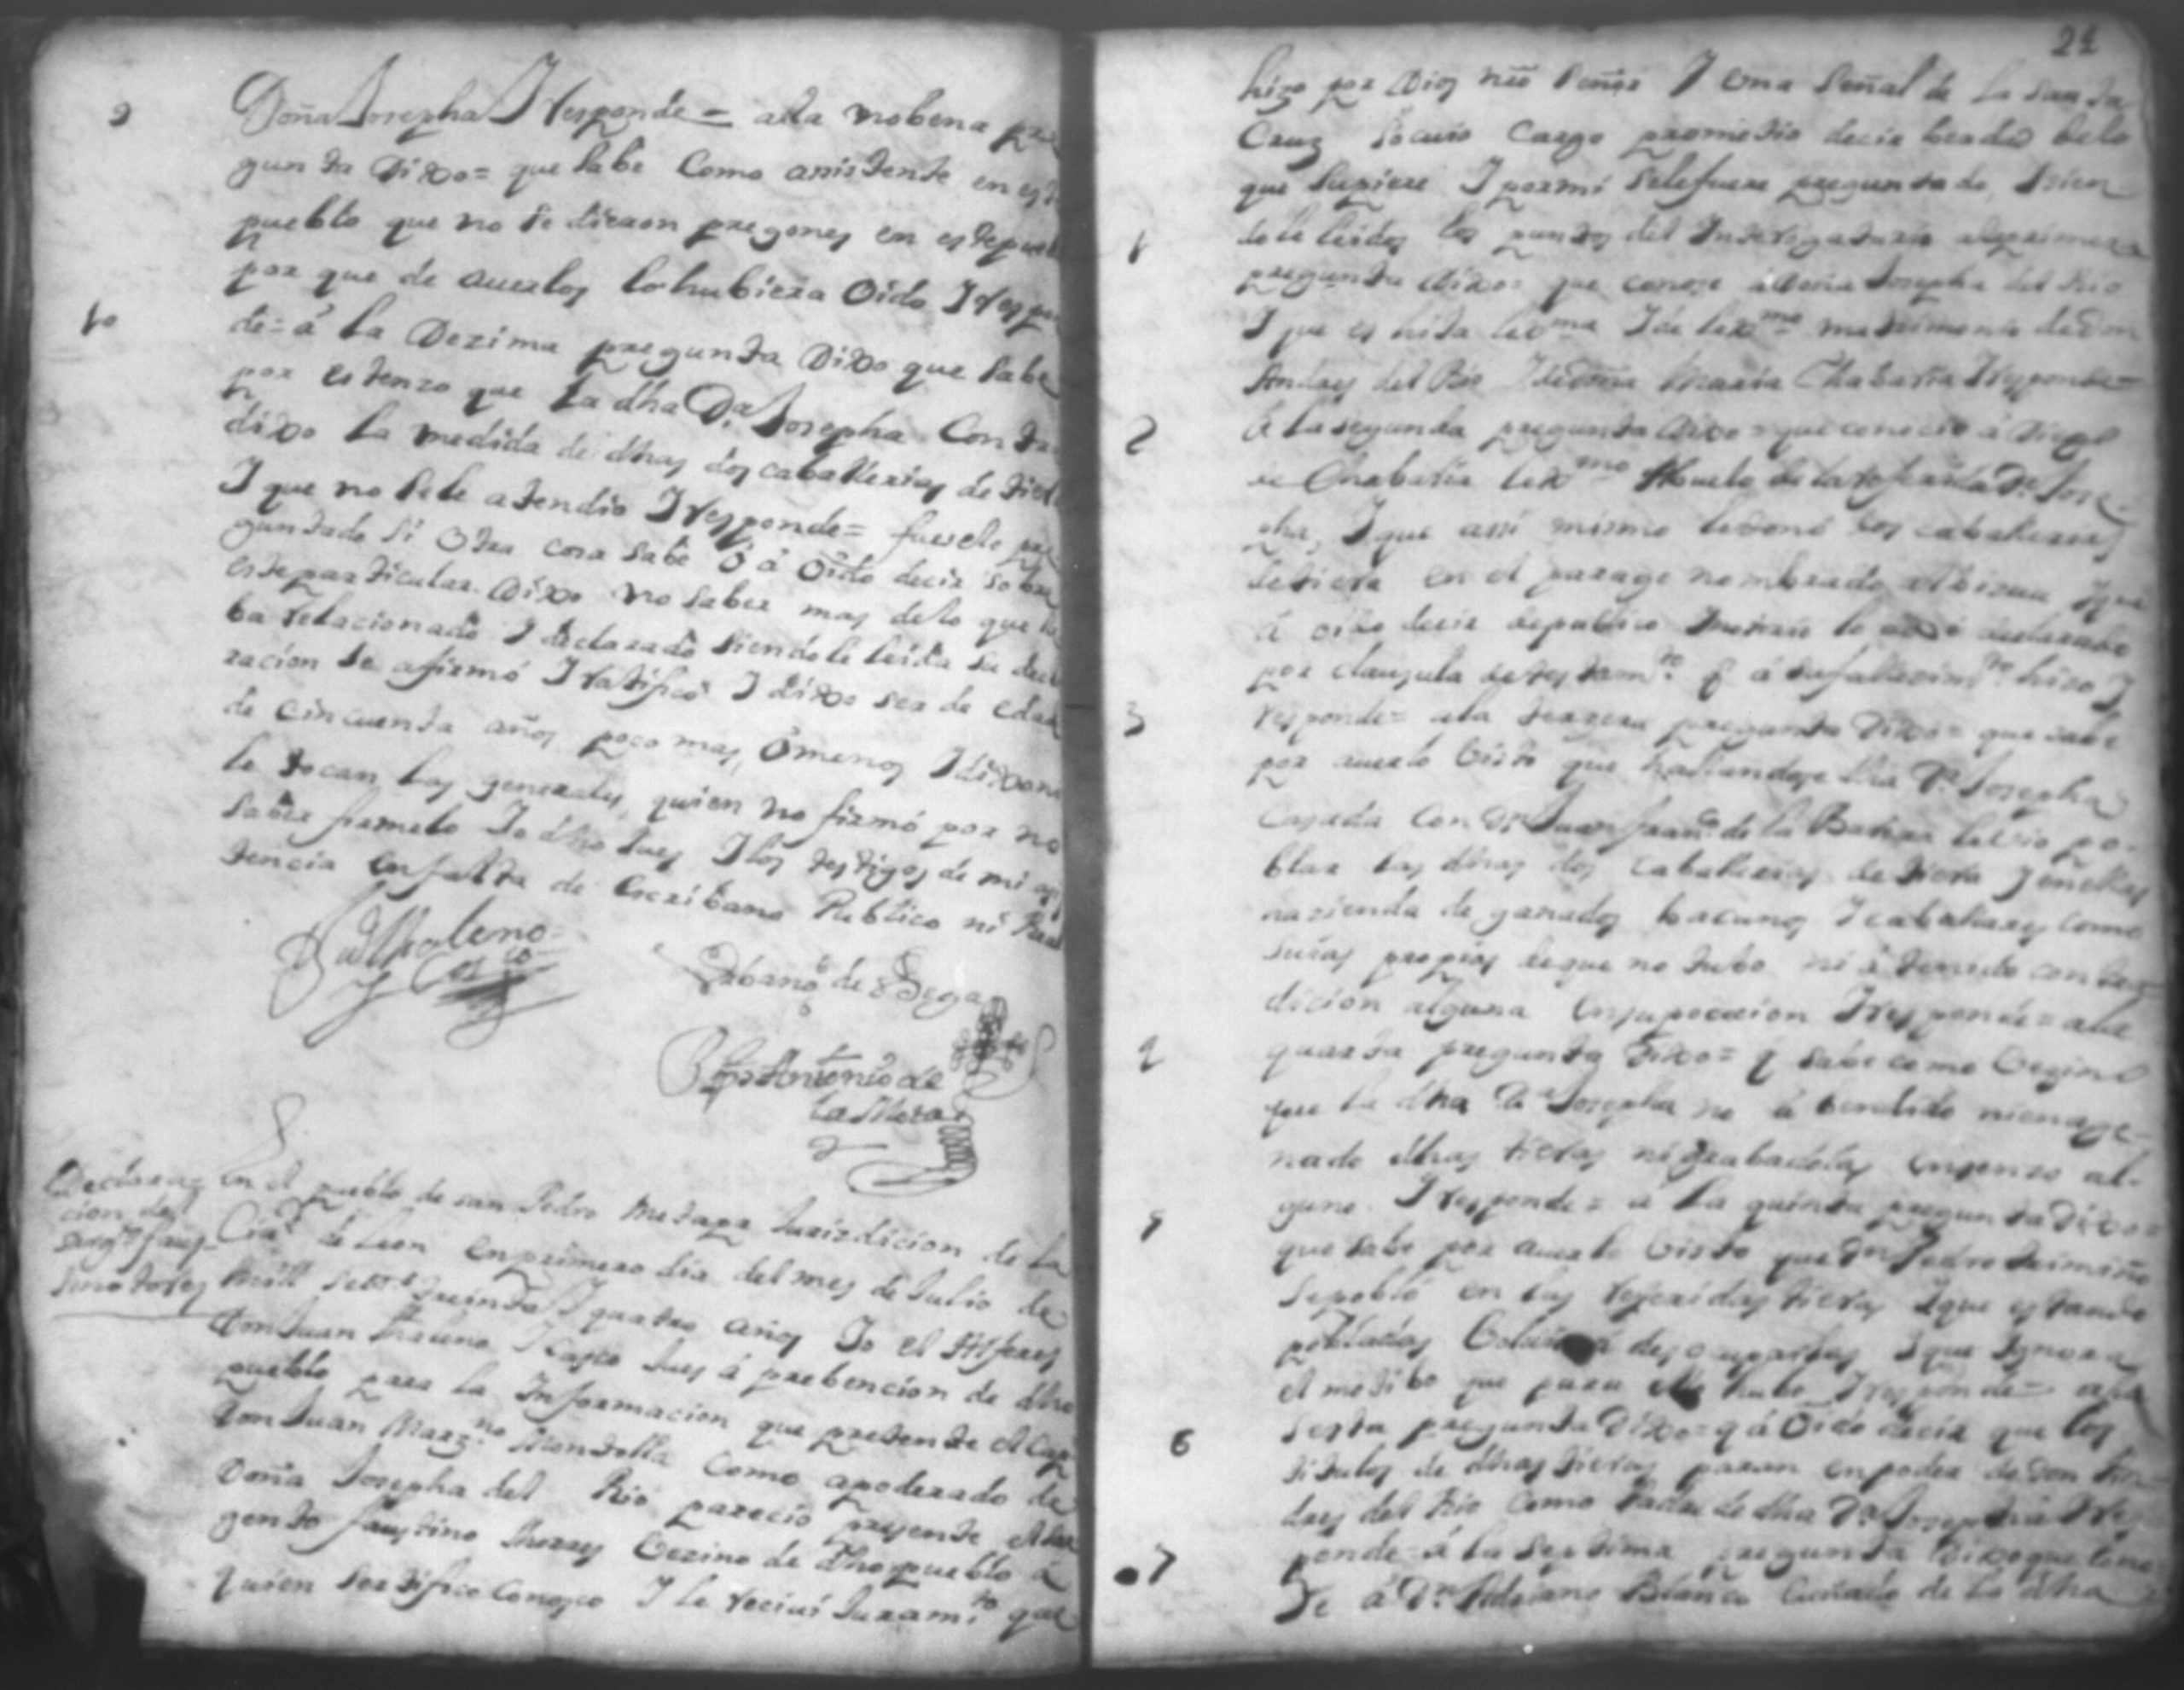 9 Doña Josepha I Responde = a la nobena pre
gunta dixo = que sabe Como asistente en este
pueblo que no se dieron pregones en este pueblo
por que de averlos lo hubiera Oido I Respon
10 de = á la Dezima pregunta Dixo que sabe
por estenzo que la dha Da. Josepha Contra
dixo la medida de dhas dos caballerias de tierra
I que no se le atendio I Responde = fuesele pre
guntado si Otra cosa sabe ó á Oido decir sobre
este particular. Dixo no saber mas de lo que lle
ba relacionado I declarado siendole leida su decla
racion se afirmó I ratificó I dixo ser de edad
de cincuenta años poco mas, ó menos I dixo no
le tocan las generales, quien no firmó por no
saber firmelo Io dho Jues I los testigos de mi asis
tencia en falta de Escribano Publico ni Real
de Bega
Antonio de
la Mora
Declara=
cion del
Sargto faus-
tino torres
En el pueblo de san Pedro Metapa Jurisdicion de la
Ciud. de Leon en primero dia del mes de Julio de
mill setes. treinta I quatro años Io el Alferes
Don Juan I Casco Jues á prebencion de dho
pueblo para la Informacion que pretende el Cap
Don Juan Marzno. Como apoderado de
Doña Josepha del Rio parecio presente el Sar
gento faustino thorres Vezino de dho pueblo á
quien sertifico Conosco I le recivi Juramto. que
24
hizo por Dios nro señor I Una señal de la santa
Cruz so cuio Cargo prometio decir berdad de lo
que supiere I por mi se le fuere preguntado, I sien
1 dole leidos los puntos del Interrogatorio a la primera
pregunta dixo = que conose á doña Josepha del Rio
I que es hixa lexma. I de lexmo. matrimonio de don
Andres del Rio I de doña Maria Chabarria I Responde =
2 á la segunda pregunta dixo = que conocio á Diego
de Chabarria lexmo. Abuelo de la referida Da. Jose-
pha, I que assi mismo le donó dos caballerias
de tierra en el parage nombrado I que
á oido decir de publico I notorio lo dexó declarado
por clausula de testamto. q á su fallecimto. hizo I
3 responde = a la terzera pregunta Dixo = que sabe
por averlo bisto que hallandose dha Da. Josepha
Casada Con Dn. Juan franco. de la Barrera le vio po-
blar las dhas dos caballerias de tierra I en ellas
hazienda de ganados bacunos I caballares como
suias propias I que no tubo ni á tenido contra-
dicion alguna en su possecion I Responde = a la
4 quarta pregunta dixo = q sabe como Vezino
que la dha Da. Josepha no á bendido ni enage-
nado dhas tierras ni grabadolas en senso al-
5 guno. I responde = a la quinta pregunta dixo =
que sabe por averlo bisto que Dn Pedro
se pobló en las referidas tierras I que estando
pobladas á desocuparlas I que Ignora
el motibo que para ello hubo I responde = a la
6 sesta pregunta Dixo = q á Oido decir que los
titulos de dhas tierras paran en poder de don An-
dres del Rio como Padre de dha Da. Josepha I Res
7 ponde = á la septima pregunta Dixo que cono-
se á Dn. Adriano Blanco Cuñado de la dha